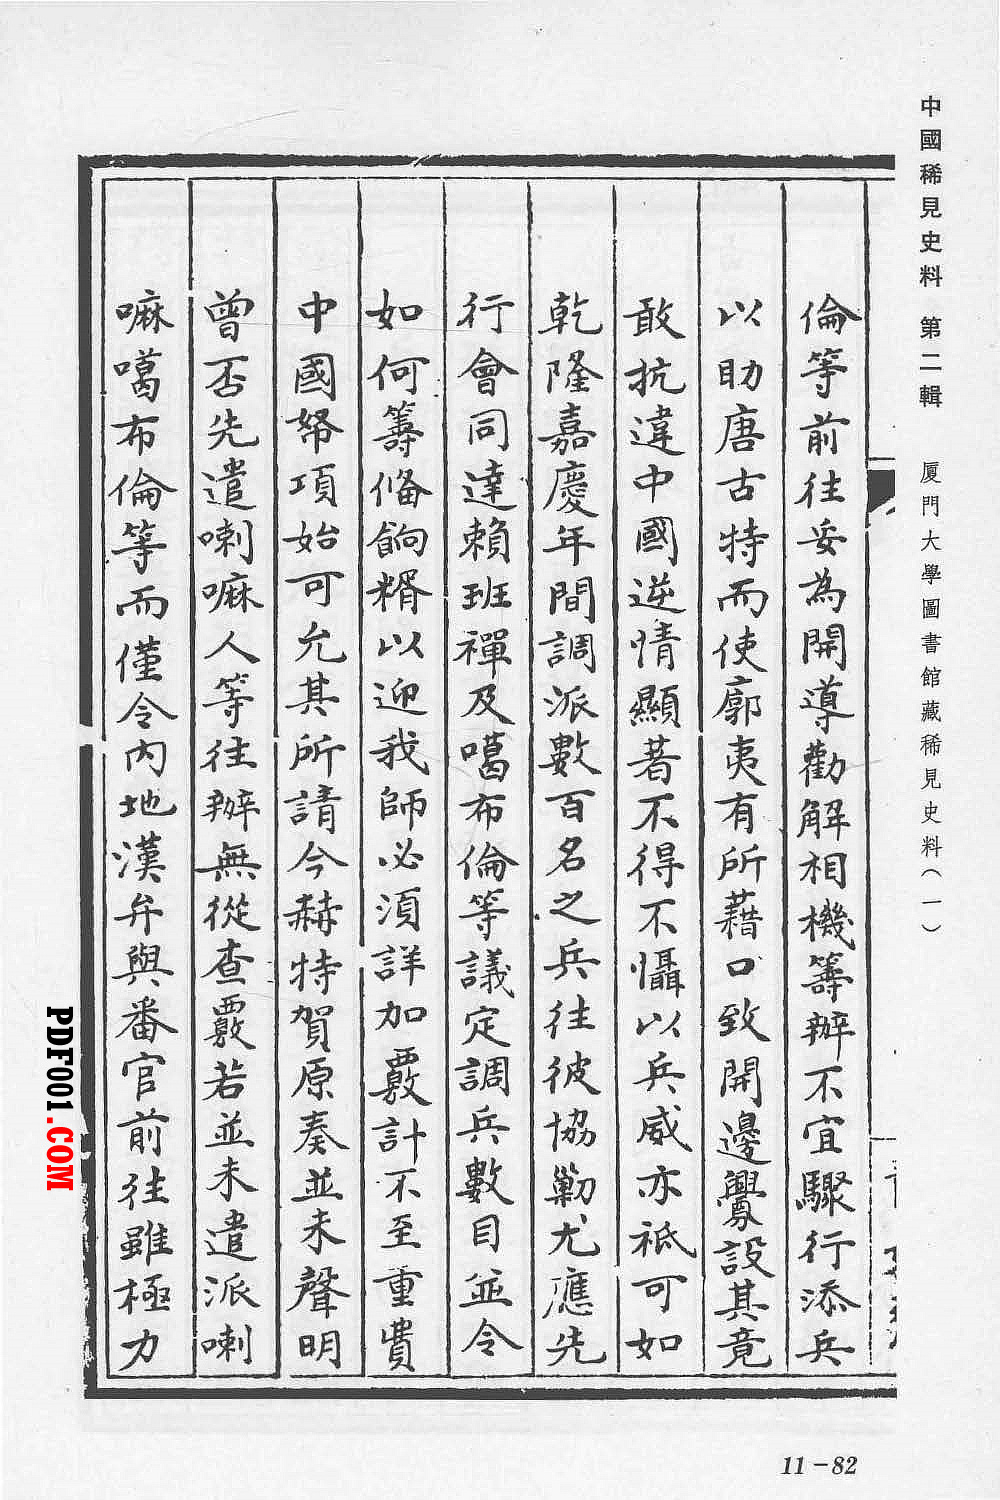 中國稀見史料 第二輯 厦門大學圖書館藏稀見史料（一）
倫等前往妥為開導勸解相機籌辦不宜驟行添兵
以助唐古特而使廓夷有所藉口致開邊釁設其竟
敢抗違中國逆情顯著不得不懾以兵威亦祗可如
乾隆嘉慶年間調派數百名之兵往彼協勦尤應先
行會同達賴班禪及噶布倫等議定調兵數目並令
如何籌俻餉糈以迎我師必須詳加覈計不至重費
中國帑項始可允其所請今赫特賀原奏並未聲明
曾否先遣喇嘛人等往辦無從查覈若並未遣派喇
嘛噶布倫等而僅令內地漢弁與番官前往雖極力
11-82
PDF001.COM